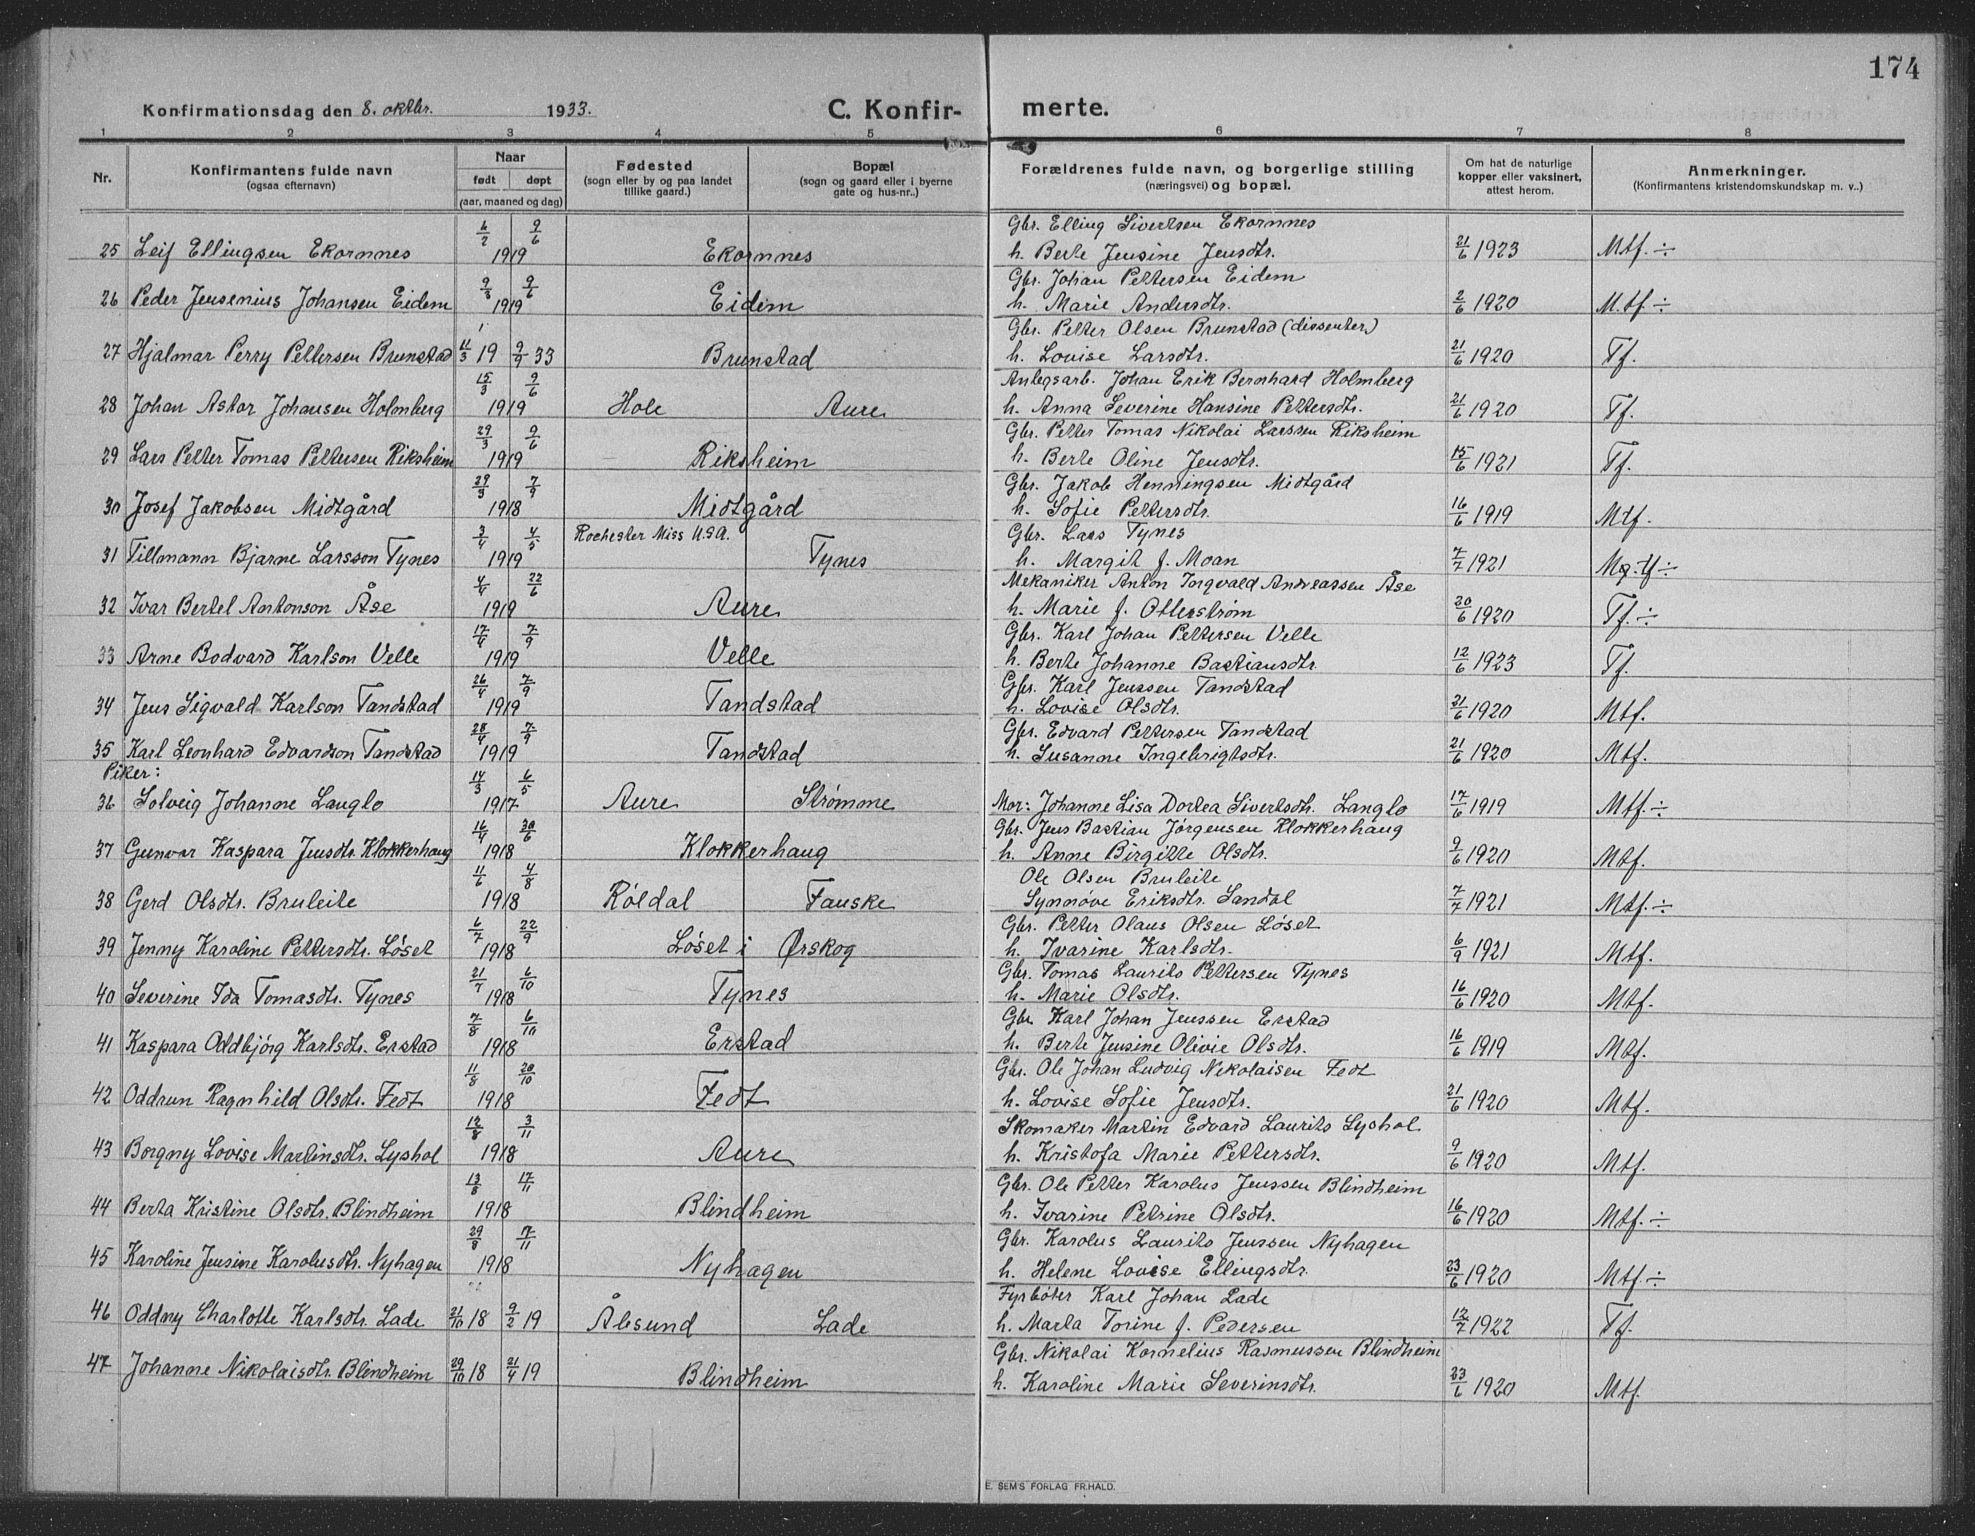 174
Konfirmationsdag den 8. oktbr. 1933. C. Konfir- merte.
1 2 3 4 5 6 7 8
Nr. Konfirmantens fulde navn (ogsaa efternavn) Naar født døpt (aar, maaned og dag) Fødested (sogn eller by og paa landet tillike gaard.) Bopæl (sogn og gaard eller i byerne gate og hus-nr..) Forældrenes fulde navn, og borgerlige stilling (næringsvei) og bopæl. Om hat de naturlige kopper eller vaksinert, attest herom. Anmerkninger. (Konfirmantens kristendomskundskap m. v..)
6/2 9/6 Gbr. Elling Sivertsen Ekornnes
25 Leif Ellingsen Ekornnes 1919 Ekornnes h. Berte Jensine Jensdtr. 21/6 1923 Mtf. ÷
9/3 9/6 Gbr. Johan Pettersen Eidem
26 Peder Jensenius Johansen Eidem 1919 Eidem h. Marie Andersdtr. 2/6 1920 M.tf. ÷
Gbr. Petter Olsen Brunstad (dissenter)
27 Hjalmar Perry Pettersen Brunstad 11/3 19 9/9 33 Brunstad h. Lovise Larsdtr. 21/6 1920 Tf.
15/3 9/6 Anlegsarb. Johan Erik Bernhard Holmberg
28 Johan Astor Johansen Holmberg 1919 Hole Aure h. Anna Severine Hansine Pettersdtr. 21/6 1920 Tf.
29/3 9/6 Gbr. Petter Tomas Nikolai Larssen Riksheim
29 Lars Petter Tomas Pettersen Riksheim 1919 Riksheim h. Berte Oline Jensdtr. 15/6 1921 Tf.
29/3 7/9 Gbr. Jakob Henningsen Midtgård
30 Josef Jakobsen Midtgård 1918 Midtgård h. Sofie Pettersdtr. 16/6 1919 Mtf.
3/4 4/5 Rochester Miss U.S.A. Gbr. Lars Tynes
31 Tillmann Bjarne Larsson Tynes 1919 Tynes h. Margit f. Moan 7/7 1921 Mg.tf ÷
4/4 22/6 Mekaniker Anton Ingvald Andreassen Åse
32 Ivar Bertel Antonson Åse 1919 Aure h. Marie f. Otterstrøm 20/6 1920 Tf. ÷
17/4 7/9 Gbr. Karl Johan Pettersen Velle
33 Arne Bodvard Karlson Velle 1919 Velle h. Berte Johanne Bastiansdtr. 12/6 1923 Tf.
26/4 7/9 Gbr. Karl Jenssen Tandstad
34 Jens Sigvald Karlson Tandstad 1919 Tandstad h. Lovise Olsdtr. 21/6 1920 Mtf.
28/4 7/9 Gbr. Edvard Pettersen Tandstad
35 Karl Leonhard Edvardson Tandstad 1919 Tandstad h. Susanne Ingebrigtsdtr. 21/6 1920 Mtf.
Piker:
14/3 6/5
36 Solveig Johanne Langlo 1917 Aure Strømme Mor: Johanne Lisa Dortea Sivertsdtr. Langlo 17/6 1919 Mtf. ÷
16/4 30/6 Gbr. Jens Bastian Jørgensen Klokkerhaug
37 Gunvor Kaspara Jensdtr. Klokkerhaug 1918 Klokkerhaug h. Anne Birgitte Olsdtr. 9/6 1920 Mtf.
11/6 4/8 Ole Olsen Bruleite
38 Gerd Olsdtr. Bruleite 1918 Røldal Fauske Synnøve Eriksdtr. Sandal 7/7 1921 Mtf. ÷
6/7 22/9 Gbr. Petter Olaus Olsen Løset
39 Jenny Karoline Pettersdtr. Løset 1918 Løset i Ørskog h. Ivarine Karlsdtr. 6/9 1921 Mtf.
21/7 6/10 Gbr. Tomas Laurits Pettersen Tynes
40 Severine Ida Tomasdtr. Tynes 1918 Tynes h. Marie Olsdtr. 16/6 1920 Mtf.
7/8 6/10 Gbr. Karl Johan Jenssen Erstad
41 Kaspara Oddbjørg Karlsdtr. Erstad 1918 Erstad h. Berte Jensine Olivie Olsdtr. 16/6 1919 Mtf.
11/8 20/10 Gbr. Ole Johan Ludvig Nikolaisen Fedt
42 Oddrun Ragnhild Olsdtr. Fedt 1918 Fedt h. Lovise Sofie Jensdtr. 21/6 1920 Mtf.
12/8 3/11 Skomaker Martin Edvard Laurits Lyshol
43 Borgny Lovise Martinsdtr. Lyshol 1918 Aure h. Kristofa Marie Pettersdtr. 9/6 1920 Mtf.
13/8 17/11 Gbr. Ole Petter Karolus Jenssen Blindheim
44 Berta Kristine Olsdtr. Blindheim 1918 Blindheim h. Ivarine Petrine Olsdtr. 16/6 1920 Mtf. ÷
29/8 7/11 Gbr. Karolus Laurits Jenssen Nyhagen
45 Karoline Jensine Karolusdtr. Nyhagen 1918 Nyhagen h. Helene Lovise Ellingsdtr. 23/6 1920 Mtf. ÷
Fyrbøter Karl Johan Lade
46 Oddny Charlotte Karlsdtr. Lade 21/10 18 9/2 19 Ålesund Lade h. Marta Torine f. Pedersen 12/7 1922 Tf.
Gbr. Nikolai Kornelius Rasmussen Blindheim
47 Johanne Nikolaisdtr. Blindheim 29/10 18 21/4 19 Blindheim h. Karoline Marie Severinsdtr. 23/6 1920 Mtf.
E. SEM'S FORLAG FR.HALD.